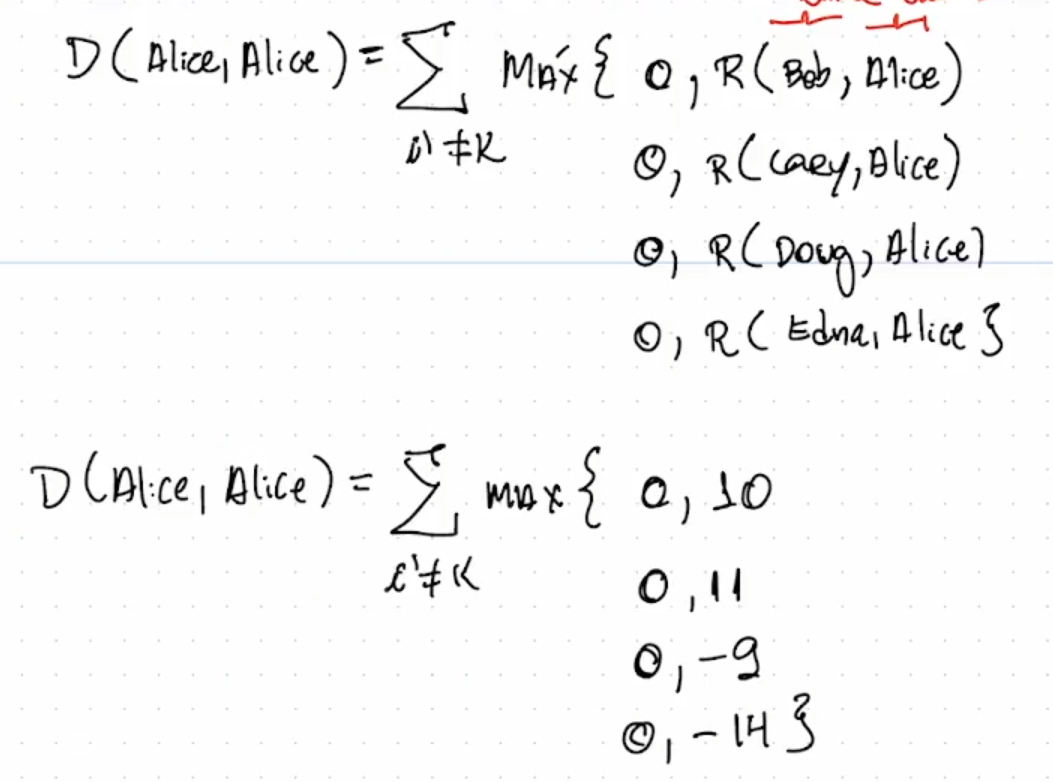 D(Alice, Alice) = ∑ MÁX { 0, R(Bob, Alice)
i' ≠ K
0, R(Cary, Alice)
0, R(Doug, Alice)
0, R( Edna, Alice }
D(Alice, Alice) = ∑ max { 0, 10
i' ≠ K
0, 11
0, -9
0, -14 }